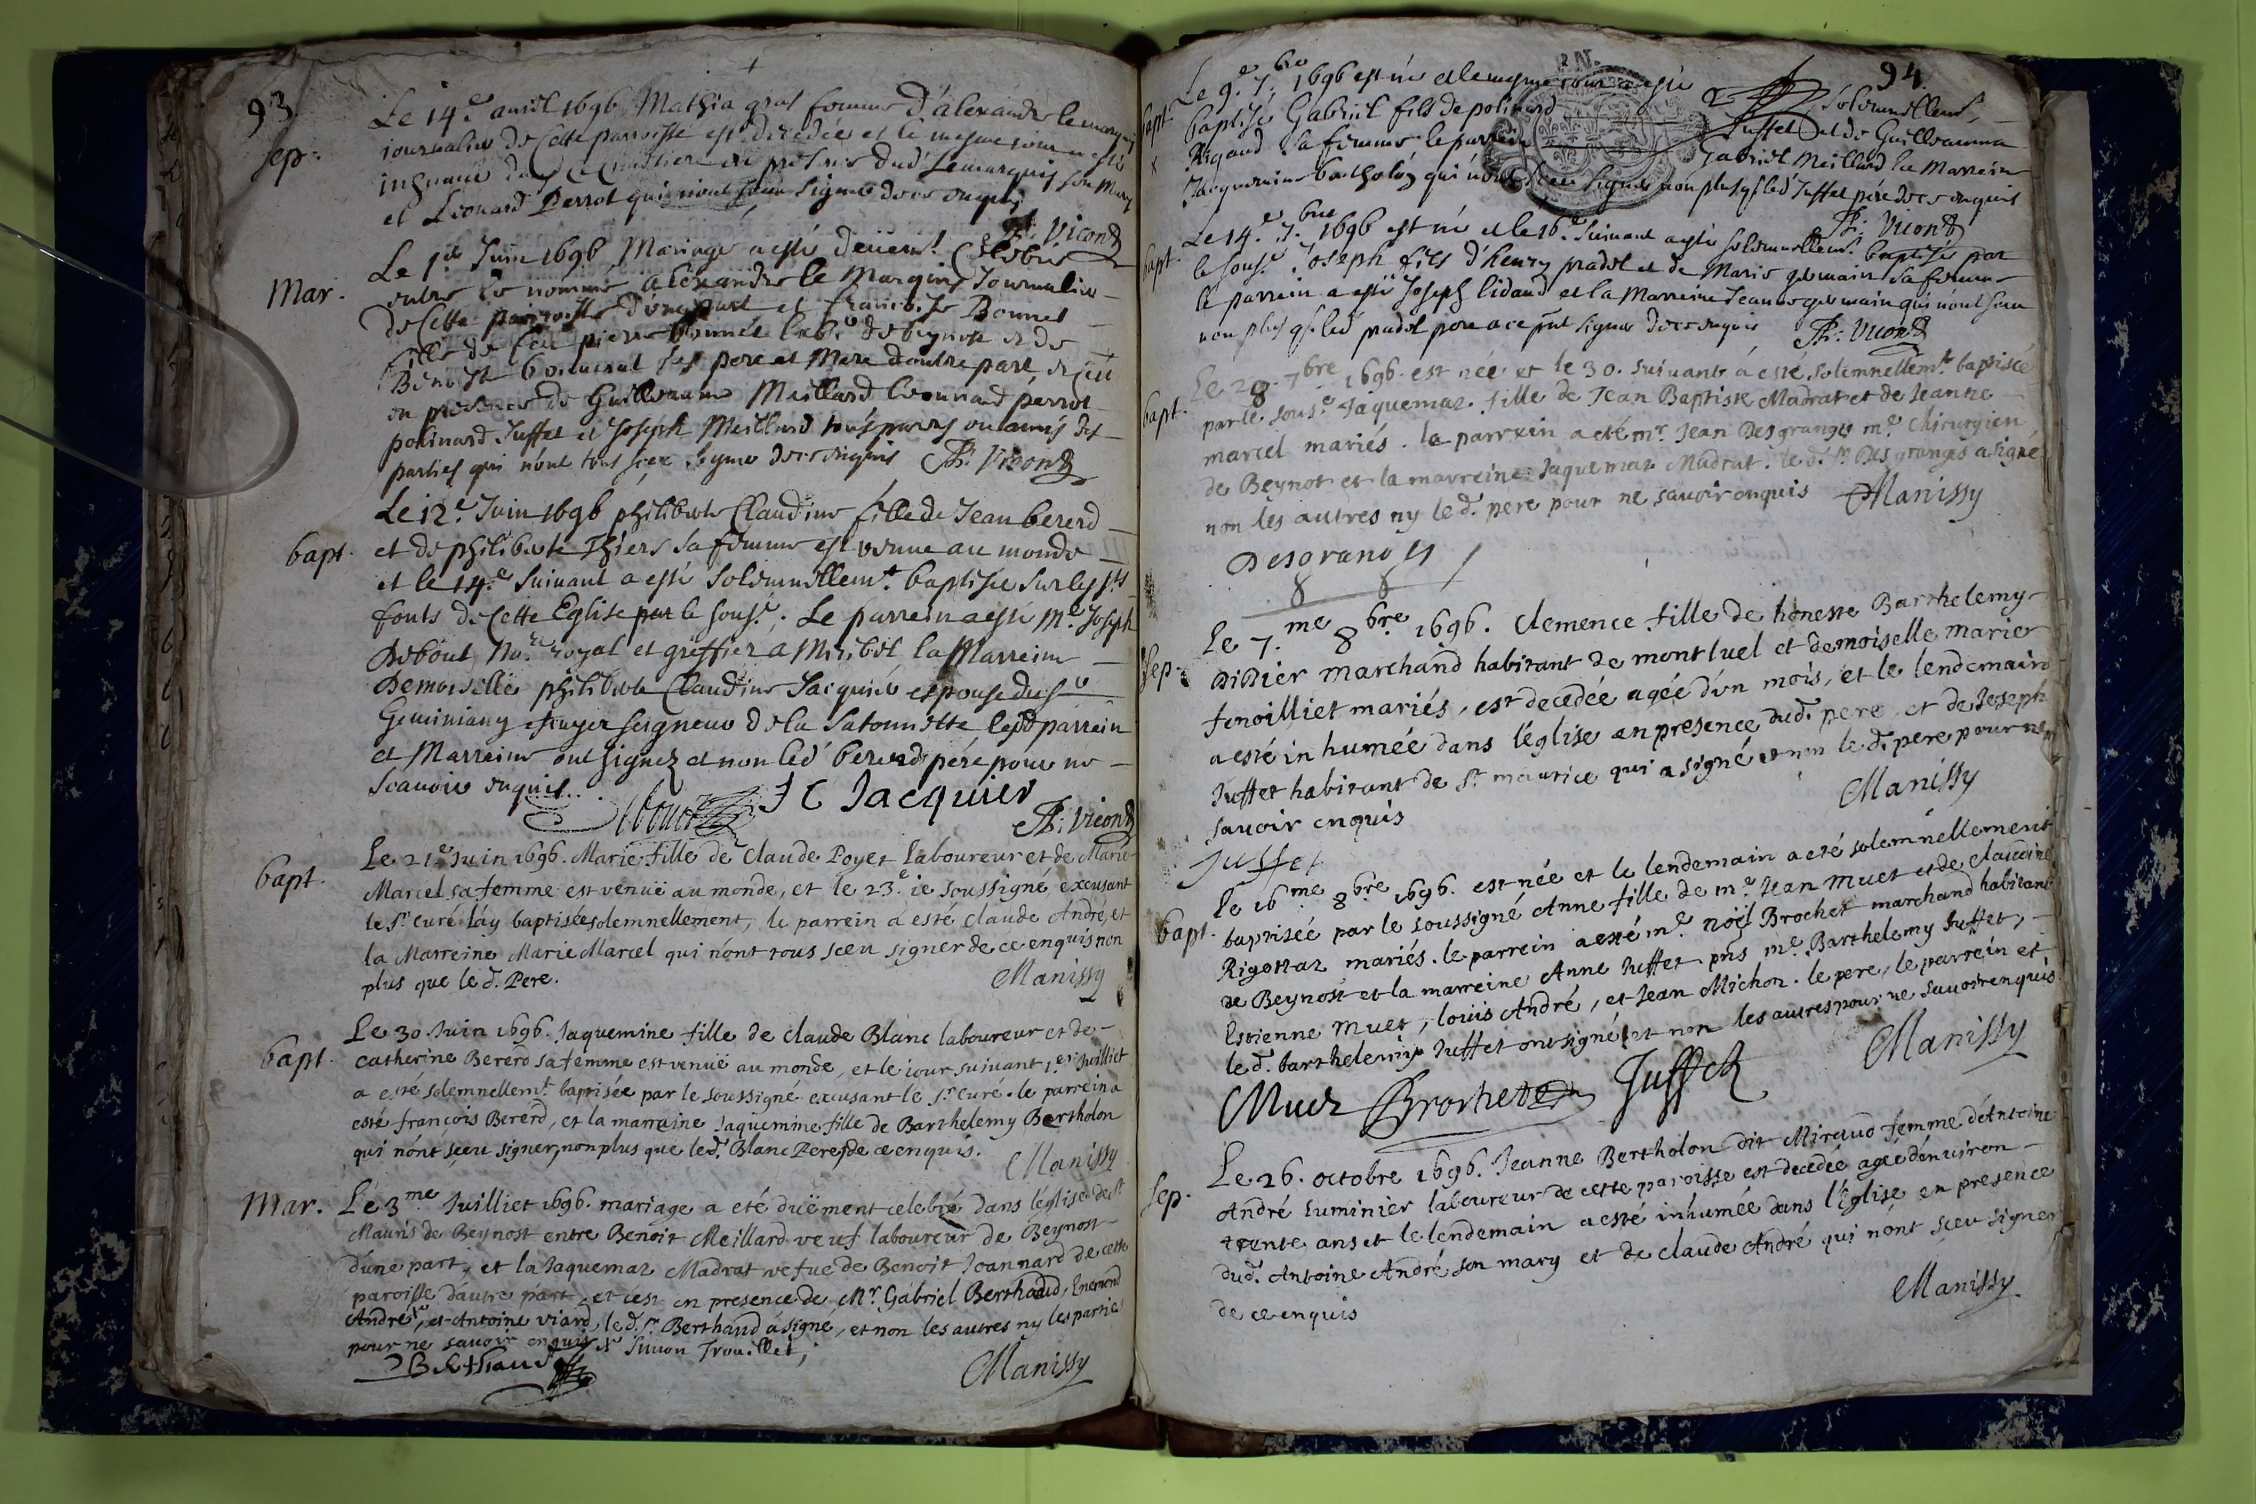 93
Le 14.e auril 1696 Mathia gras femme d'alexandre le marquis
sep.
journalier de Cette parroisse est decedée et le mesme jour a esté
inhumée du Cimetiere en presence dud. Lemarquis son Mary
et Leonard Perrot qui n'ont sceu signer de ce enquis
Vicond
Mar.
Le 1.er Juin 1696 Mariage a esté deuem.t Celebré
entre les nommés alexandre le Marquis Journalier
de Cette parroisse d'une part et francoise Bonnet
fille de feu pierre Bonnet lab.r de beynost et de
Benoiste ses pere et Mere d'autre part et ce
en presence de Guilleaume Meillard Leonnard perrot
polinard Juffet et Joseph Meillard tous parens ou amis des
parties qui n'ont tous sceu signer de ce enquis Vicond
Le 12.e Juin 1696 philiberte Claudine fille de Jean bererd
bapt.
et de philiberte Thiers sa femme est venue au monde
et le 14.e Suiuant a esté Solemnellem.t baptisée sur les s.ts
fonts de Cette Eglise par le sous.é. Le parrein a esté M.e Joseph
Debout No.re royal et greffier a Miribel la Marreine
Demoiselle philiberte Claudine Jacquier espouse du s.r
Geminiany escuyer seigneur de la Satonnette lesd parrein
et Marreine ont signez et non led bererd pére pour ne
scauoir enquis.
Debout J C Jacquier
Vicond
Le 21.e Juin 1696. Marie fille de Claude Poyet Laboureur et de Marie
bapt.
Marcel sa femme est venuë au monde, et le 23.e ie soussigné excusant
le S.r Curé l'ay baptisée solemnellement, le parrein a esté Claude André, et
la Marreine Marie Marcel qui n'ont tous sceu signer de ce enquis non
plus que le d. Pere.
Manissy
Le 30. Juin 1696. Jaquemine fille de Claude Blanc laboureur et de
bapt.
catherine Bererd sa femme est venuë au monde, et le iour suiuant 1.er Juilliet
a esté solemnellem.t baptisée par le soussigné excusant le s.r Curé. le parrein a
esté françois Bererd, et la marraine Jaquemine fille de Barthelemy Bertholon
qui n'ont sceu signer, non plus que led. Blanc Pere, de ce enquis.
Manissy
Mar.
Le 3.me Juilliet 1696. mariage a eté duëment celebré dans l'église de S.t
Mauris de Beynost entre Benoit Meillard veuf laboureur de Beynost
d'une part, et la Jaquemaz Madrat vefue de Benoit Joannard de cette
paroisse d'autre part, et c'est en presence de M.r Gabriel Berthaud, Enemond
André, et Antoine viard, le d. s.r Berthaud a signé, et non les autres ny les parties
pour ne savoir enquis et Simon Trouillet,
Berthaud
Manissy
94
Le 9.e 7.bre 1696 est né et le mesme jour a esté Solemnellem.t
bapt.
baptisé Gabriel fils de polinard Juffet et de Guilleauma
Rigaud sa femme le parrein Gabriel Meillard la Marreine
Jacquemine bertholon qui n'ont sceu signer non plus q. led Juffet pére de ce enquis
Vicond
Le 14.e 7.bre 1696 est né et le 16.e suiuant a esté solemnellem.t baptisé par
bapt.
le sous.é Joseph fils d'henry pradel et de Marie germain sa femme
le parrein a esté Joseph lidaud et la Marreine Jeanne germain qui n'ont sceu
non plus q. led pradel pere a ce pnt signer de ce enquis Vicond
Le 28. 7bre 1696. est née et le 30. suivant a esté solemnellem.t baptisée
bapt.
par le sous.é Jaquemaz fille de Jean Baptiste Madrat et de Jeanne
marcel mariés. le parrein a eté m.r Jean Desgranges m.e Chirurgien
de Beynost et la marreine Jaquemaz Madrat. le d. s.r Desgranges a signé
non les autres ny led. pere pour ne savoir enquis Manissy
Desgranges
Le 7.me 8bre 1696. Clemence fille de honeste Barthelemy
Sep.
DiDier marchand habitant de montluel et demoiselle marie
fenoilliet mariés, est decedée agée d'un mois, et le lendemain
a esté inhumée dans l'église en presence dud. pere, et de Joseph
Juffet habitant de S.t maurice qui a signé et non le d. pere pour ne
savoir enquis
Manissy
Juffet
Le 16.me 8bre 1696. est née et le lendemain a eté solemnellement
bapt.
baptisée par le soussigné Anne fille de m.e Jean Muet et de Claudine
Rigottaz mariés. le parrein a esté m.e noël Brochet marchand habitant
de Beynost et la marreine Anne Juffet pns m.e Barthelemy Juffet,
Estienne Muet, loüis André, et Jean Michon. le pere, le parrein et
le d. barthelemy Juffet ont signé, et non les autres pour ne savoir enquis
Manissy
Muet Brochet Juffet
Le 26. octobre 1696. Jeanne Bertholon dit Miraud femme d'Antoine
Sep.
André Luminier laboureur de cette paroisse est decedée agée d'enuiron
trente ans et le lendemain a esté inhumée dans l'Eglise en presence
dud. Antoine André son mary et de claude André qui n'ont sceu signer
de ce enquis
Manissy